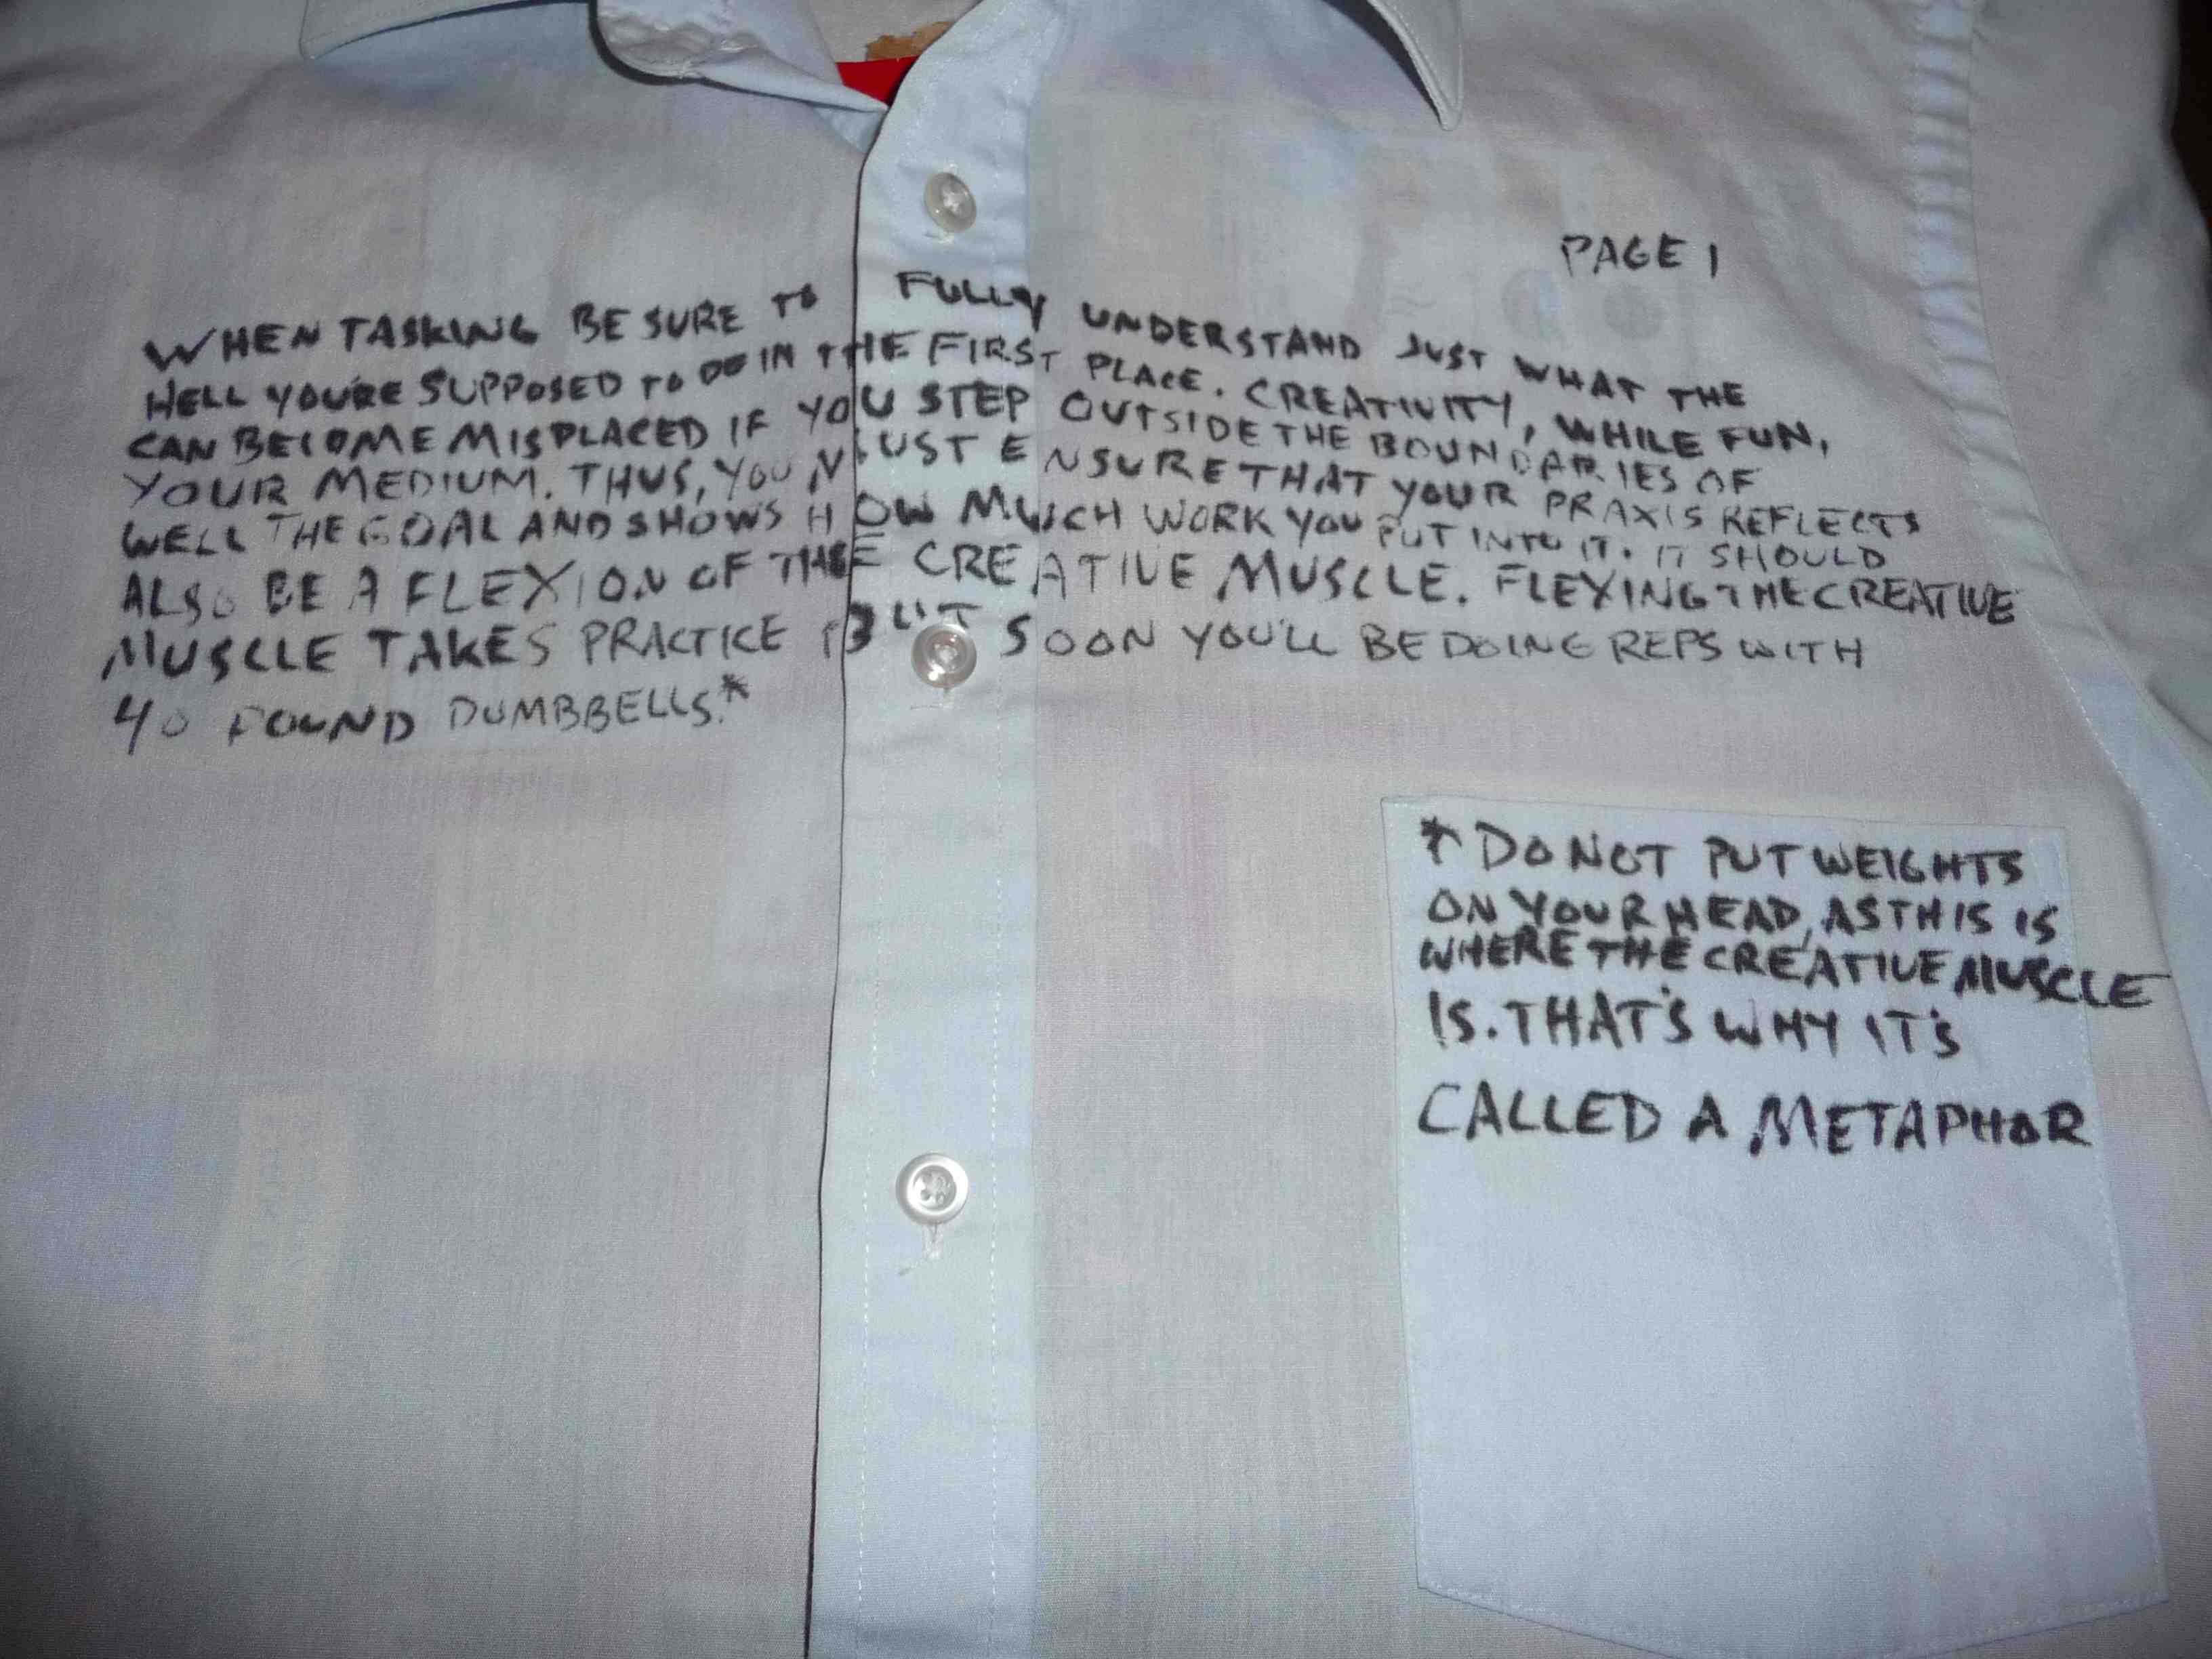 PAGE 1
WHEN TASKING BE SURE TO FULLY UNDERSTAND JUST WHAT THE
HELL YOU'RE SUPPOSED TO DO IN THE FIRST PLACE. CREATIVITY, WHILE FUN,
CAN BECOME MISPLACED IF YOU STEP OUTSIDE THE BOUNDARIES OF
YOUR MEDIUM. THUS, YOU MUST ENSURE THAT YOUR PRAXIS REFLECTS
WELL THE GOAL AND SHOWS HOW MUCH WORK YOU PUT INTO IT. IT SHOULD
ALSO BE A FLEXION OF THE CREATIVE MUSCLE. FLEXING THE CREATIVE
MUSCLE TAKES PRACTICE BUT SOON YOU'LL BE DOING REPS WITH
40 POUND DUMBBELLS.*
* DO NOT PUT WEIGHTS
ON YOUR HEAD, AS THIS IS
WHERE THE CREATIVE MUSCLE
IS. THAT'S WHY IT'S
CALLED A METAPHOR